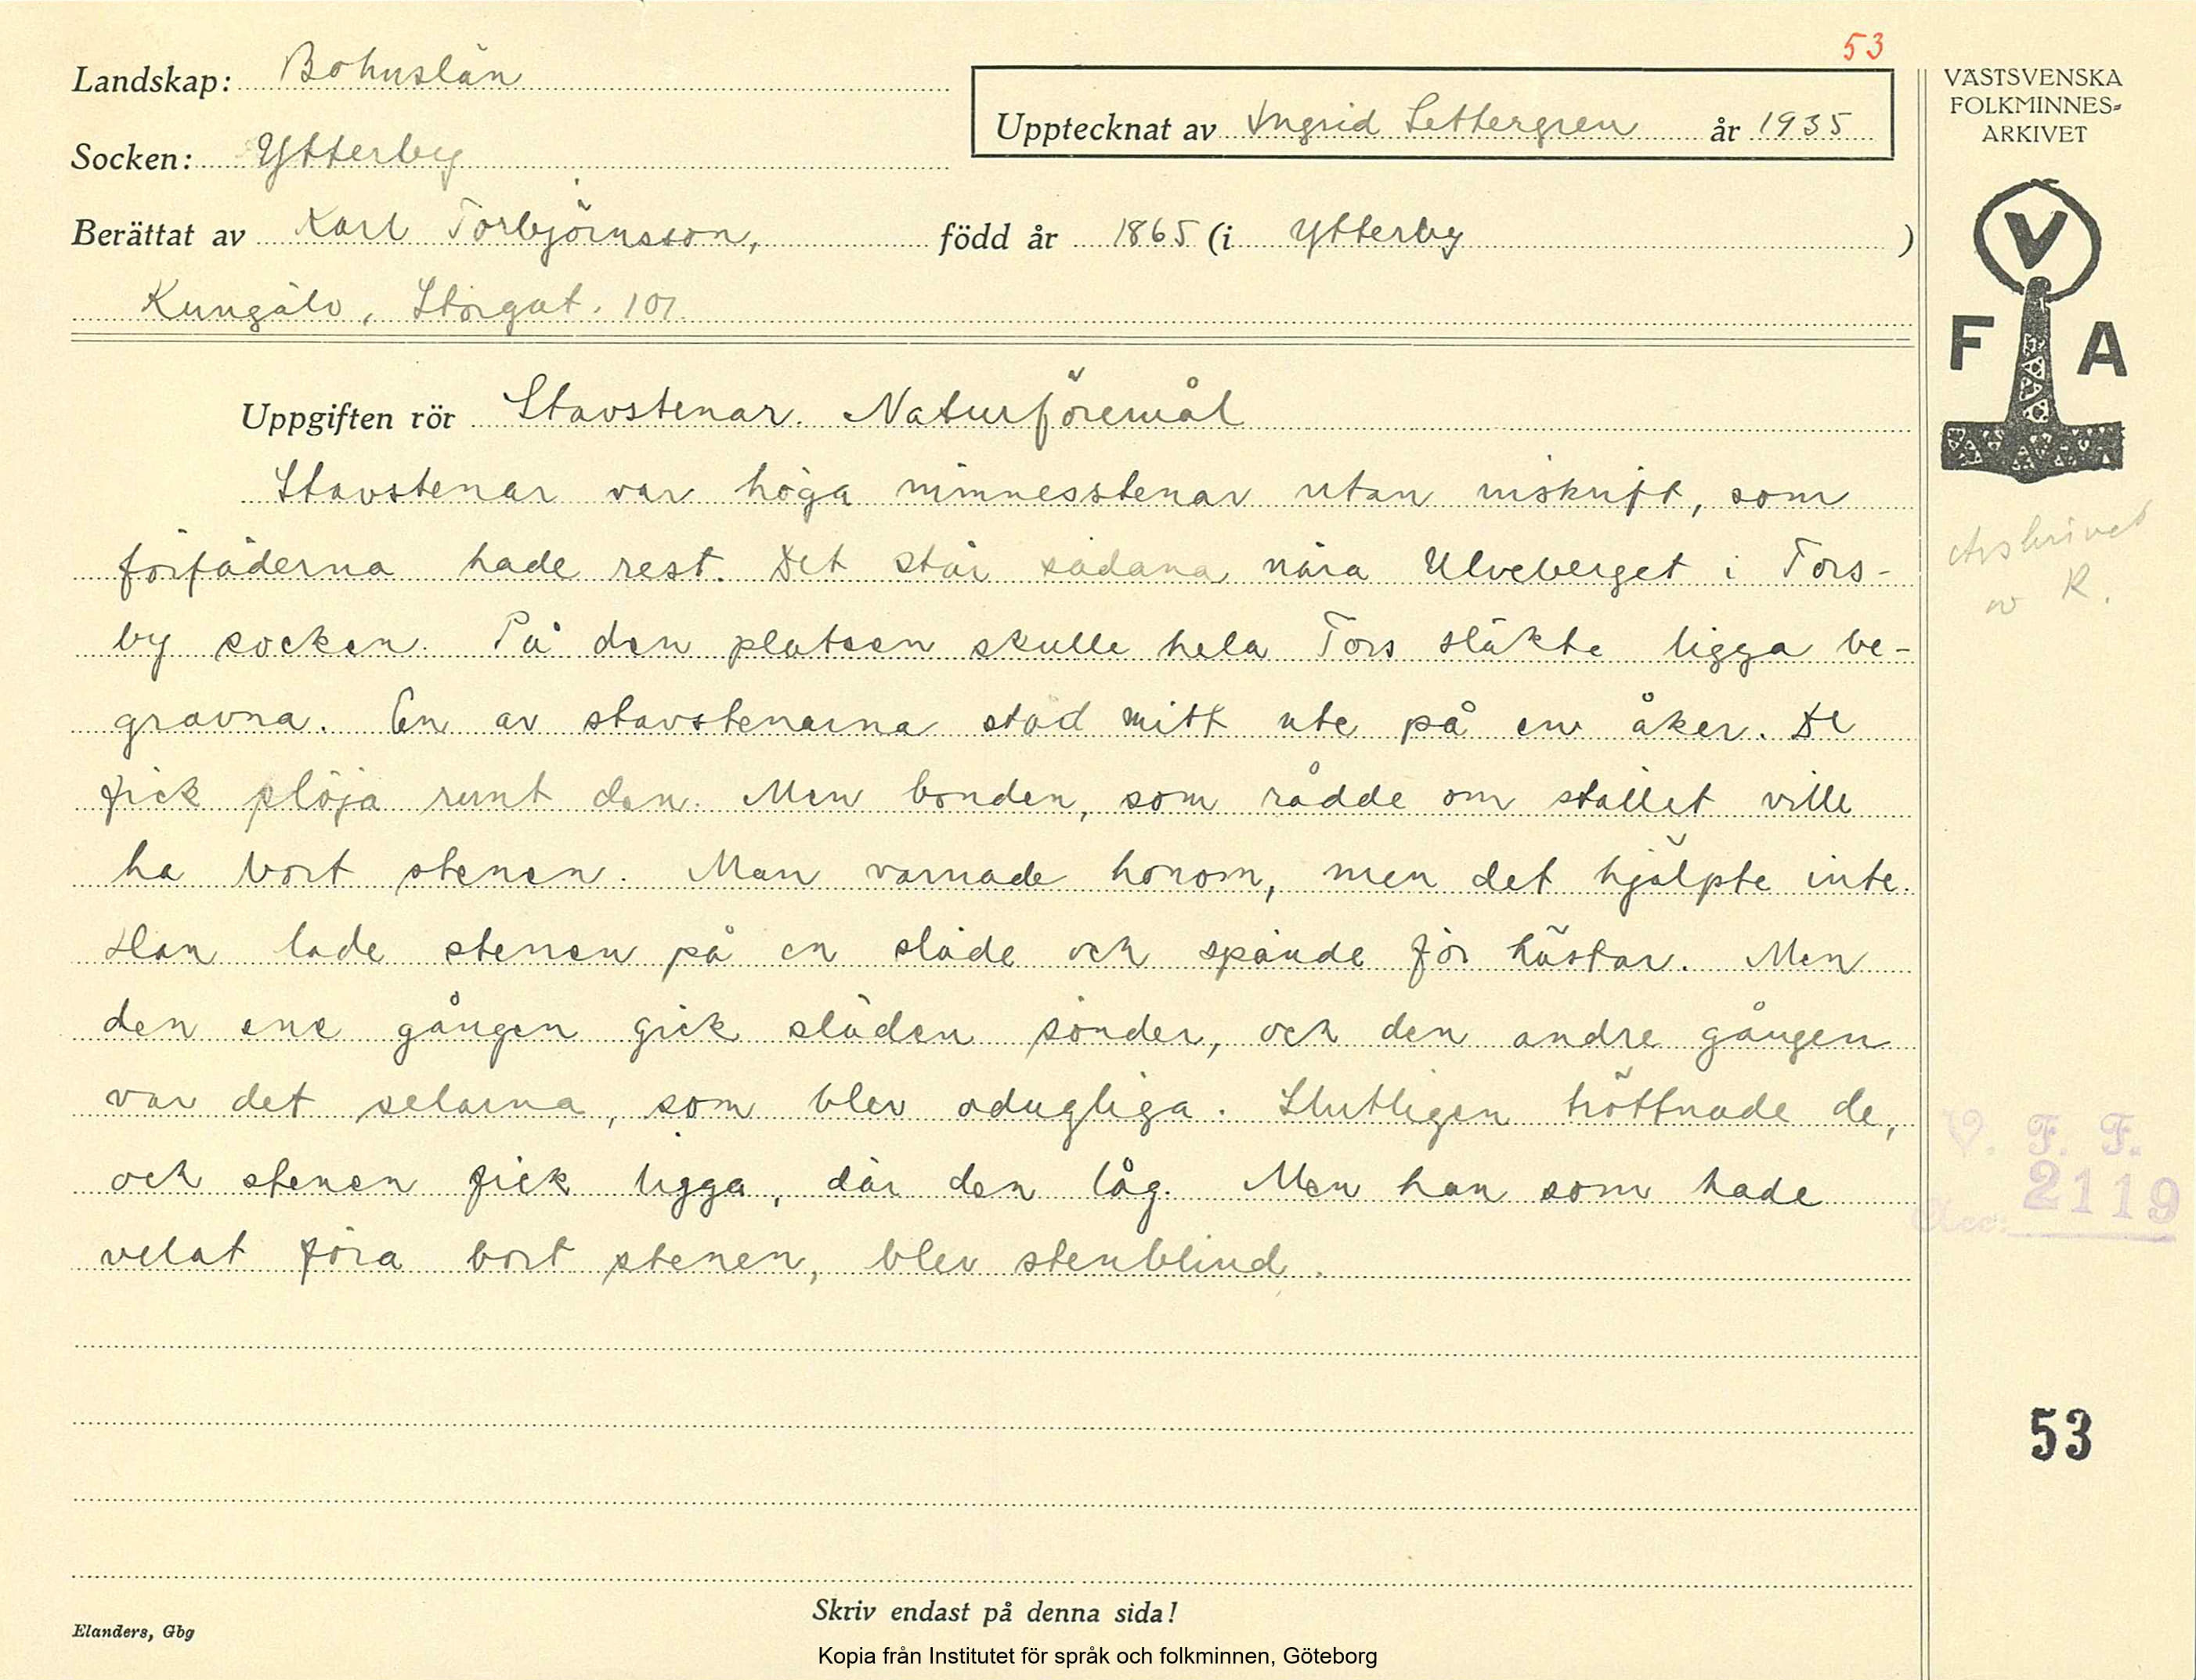 53
Landskap: Bohuslän
Upptecknat av Ingrid Settergren år 1935
Socken: Ytterby
Berättat av Karl Torbjörnsson, född år 1865 (i Ytterby )
Kungälv, Storgat. 101
Uppgiften rör Stavstenar. Naturföremål
Stavstenar var höga minnesstenar utan inskrift, som
förfäderna hade rest. Det står sådana nära Ulveberget i Tors-
by socken. På den platsen skulle hela Tors släkte ligga be-
gravna. En av stavstenarna stod mitt ute på en åker. De
fick plöja runt den. Men bonden, som rådde om stället ville
ha bort stenen. Man varnade honom, men det hjälpte inte.
Han lade stenen på en släde och spände för hästar. Men
den ene gången gick släden sönder, och den andre gången
var det selarna, som blev odugliga. Slutligen tröttnade de,
och stenen fick ligga, där den låg. Men han som hade
velat föra bort stenen, blev stenblind.
Skriv endast på denna sida!
Elanders, Gbg
Kopia från Institutet för språk och folkminnen, Göteborg
VÄSTSVENSKA
FOLKMINNES-
ARKIVET
V
F A
Avskrivet
av R.
V. F. F.
Acc: 2119
53